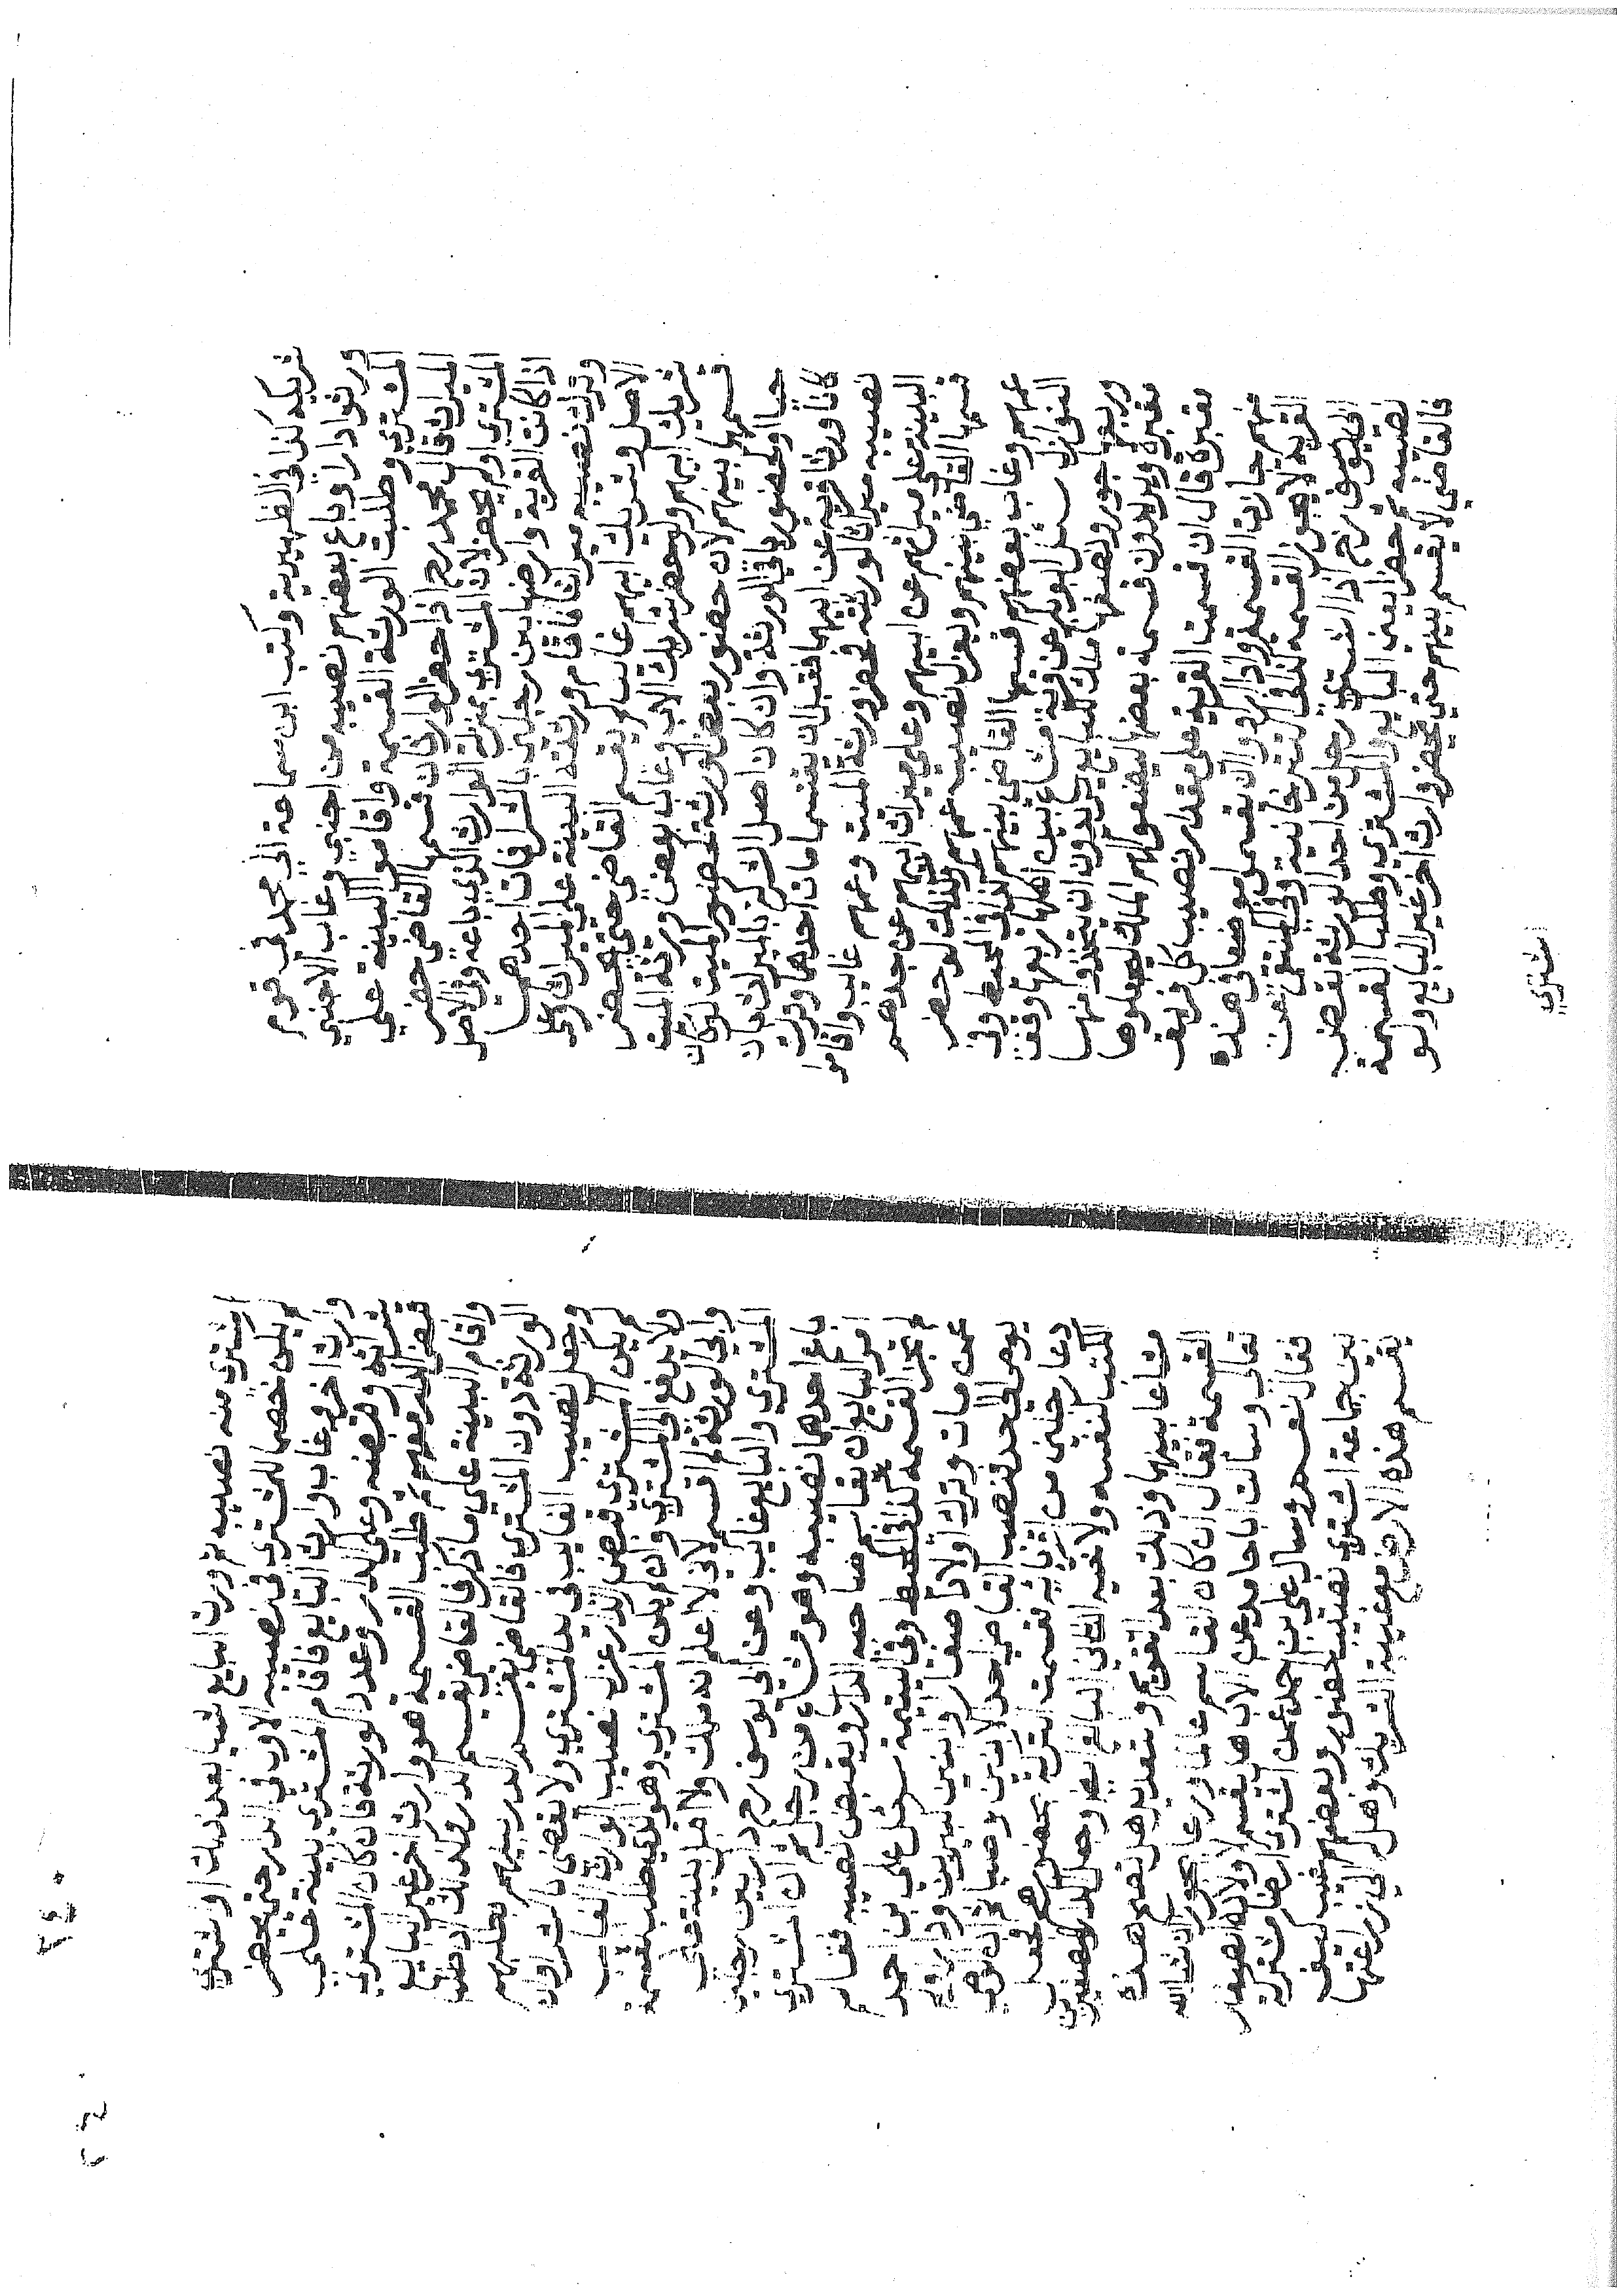 شريكه كذا في الظهيرية وكتب ابن سماعة الي محمد في قوم
ورثوا دارا وباع بعضهم نصيبه من اجنبي وغاب الاجنبي
المشتري وطلبت الورثة القسمة واقاموا البينة علي
الميراث قال محمد رح اذا حضر الوارثان قسمها القاضي حضر
المشتري اولم يحضر لان المشتري بمنزلة الوارث الذي باعه وفي الاصل
اذا كانت القرية وارضها بين رجلين بالشرا فمات احدهما
وترك نصيبه ميراثا فاقام ورثته البينة علي الميراث وعلي
الاصل وشريك ابيهم غائب لم يقسم القاضي حتي يحضر
شريك ابيهم ولو حضر شريك الاب وغاب بعض ورثة الميت
قسمها بينهم لان حضور بعض الورثة كحضور الميت لوكان
حيا وكحضور باقي الورثة وان كان اصل الشركة بالميراث بان
كانا ورثا قرية عن ابيهما فقبل ان يقتسما مات احدهما وترك
نصيبه ميراثا لورثته فحضر ورثة الميت وعمهم غايب واقاموا
البينة علي ميراثهم عن ابيهم وعلي ميراث ابيهم عن جدهم
قسمها القاضي بينهم ويعزل نصيب عمهم وكذلك لو حضر
عمهم وغاب بعضهم قسمها القاضي بينهم كذا في المحيط وفي
النوازل سئل ابو بكر عن قرية مشاع بين اهلها ربعها وقف
وربعها ونصفها ملك يريدون ان يتخذوا منها
مقبرة ويريدون قسمة بعضها
مقبرة قال ان قسمت القرية علي مقدار نصيب كل فريق
منهم جازت القسمة واذا ارادوا ان يقسموا موضعا في هذه
القرية لا يجوز القسمة كذا في التترخانية وفي المنتقي عن
ابي يوسف رح اذا اشتري رجل من احد الورثة بعض
نصيبه ثم حضرا يعني البايع والمشتري وطلبا القسمة
فالقاضي لا يقسم بينهم حتي يحضر وارث اخر غير البايع ولو
اشتري
اشتري منه نصيبه ثم ورث البايع شيا بعد ذلك او اشتري
لم يكن خصما للمشتري في نصيبه الاول في الدار حتي يحضر
وارث اخر وغاب وارث البايع فاقام المشتري بينة علي
شرائه وقبضه وعلي الدار وعدد الورثة فان كان المشتري
قبض الدار معهم ثم طلب القسمة هو وارث اخر غير البايع
واقام البينة علي ما ذكر فالقاضي يقسم الدار وكذلك ان طلب
الورثة دون المشتري فالقاضي يقسم الدار بينهم بطلبهم
وجعل نصيب الغايب في يد المشتري ولا يقضي بالشرا وان
لم يكن المشتري قبض الدار عزل نصيب الوارث الغايب
ولا يدفع الي المشتري وان كان المشتري هو الذي طلب القسمة
وابي الورثة لم اقسم لاني لا اعلم انه ملك ولا اقبل بينة علي
المشتري والبايع غايب وعن ابي يوسف رح دار بين رجلين
باع احدهما نصيبه وهو مشاع من رجل ثم ان المشتري
امر البايع ان يقاسم صاحبه الدار ويقبض نصيبه فقاسم
لم تجز القسمة كذا في المحيط وفي اليتيمة سئل علي بن احمد
عمن مات وترك اولادا صغارا وابنين كبيرين ودارا ولم
يوص الي احد فنصب القاضي احد الابنين وصيا ثم ان الوصي
دعا رجلين من اقربائه فقسمت التركة بحضورهم فجعل
الكتب لنفسه ولاخيه الثاني البالغ وجعل الدار للصغيرين
مشاعا بينهما وذلك بعد التقويم والتعديل هل تصح هذه
القسمة فقال ان كان القاسم عالما ورعا يجوز ان شا الله
تعالي وسألت ابا حامد عن الاب هل يقسم لاولاده الصغار
فقال نعم وسئل علي بن احمد عمن اشتري ارضا مشتركة
بين جماعة اشتري نصيب الحضور وبعضهم غيب كيف
يقسم هذه الارض مع غيبة الشريك وهل الي زراعتها